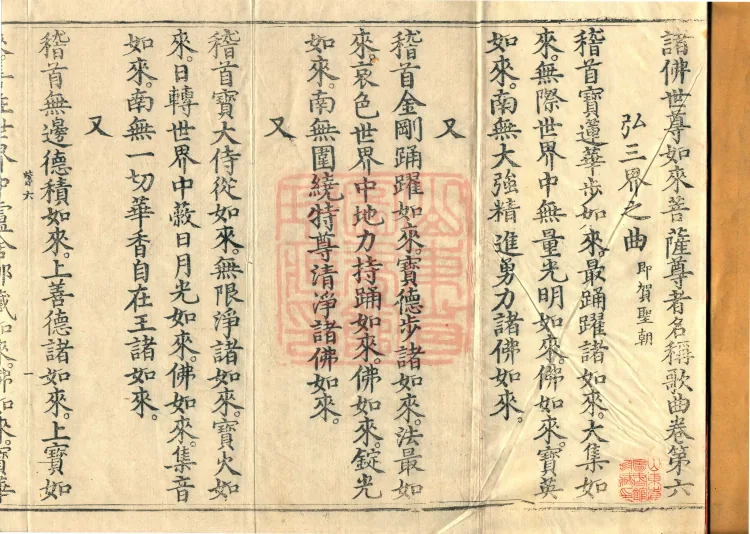 諸佛世尊如來菩薩尊者名稱歌曲卷第六
弘三界之曲 即賀聖朝
稽首寶蓮華步如來。最踊躍諸如來。大集如
來。無際世界中無量光明如來。佛如來。寶英
如來。南無大強精進勇力諸佛如來。
又
稽首金剛踊躍如來。寶德步諸如來。法最如
來。哀色世界中地力持踊如來。佛如來。錠光
如來。南無圍繞特尊清淨諸佛如來。
又
稽首寶大侍從如來。無限淨諸如來。寶火如
來。日轉世界中藂日月光如來。佛如來。集音
如來。南無一切華香自在王諸如來。
又
稽首無邊德積如來。上善德諸如來。上寶如
六
一
世界中盧舍那藏如來。佛如來。寶華